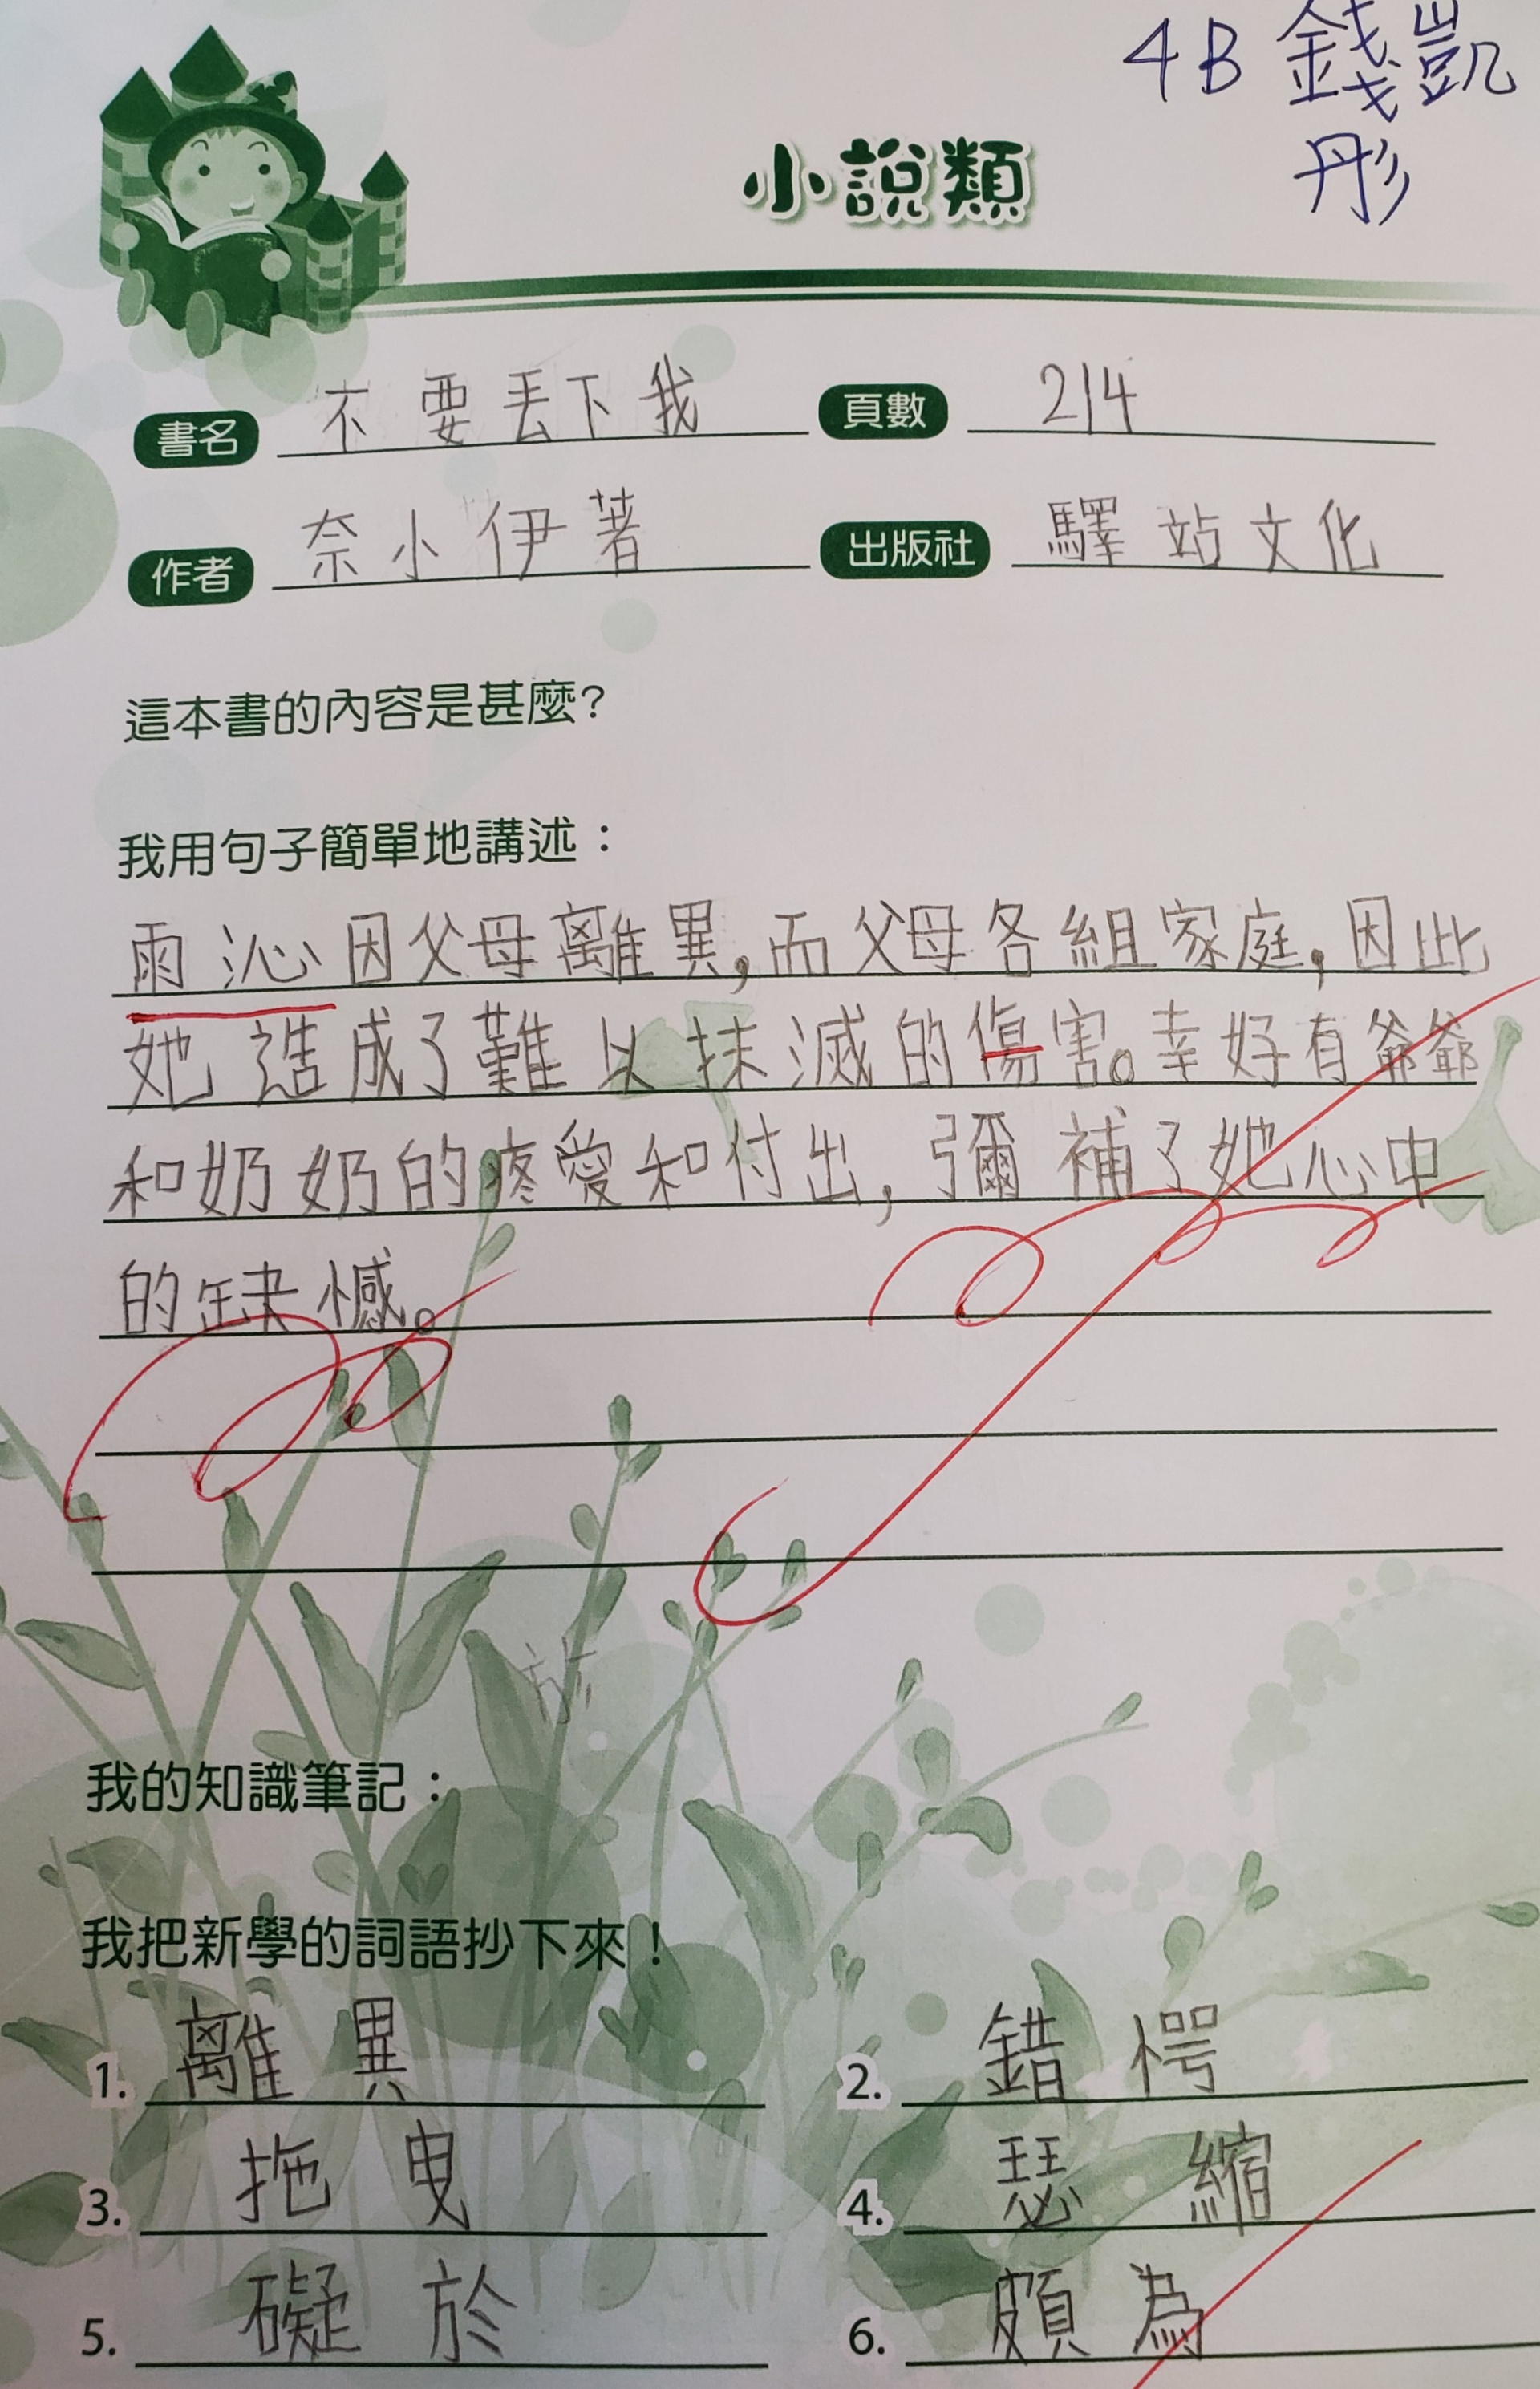 4B 錢凱
彤
小說類
書名 不要丟下我 頁數 214
作者 奈小伊著 出版社 驛站文化
這本書的內容是甚麼？
我用句子簡單地講述：
雨沁因父母離異，而父母各組家庭，因此
她造成了難以抹滅的傷害。幸好有爺爺
和奶奶的疼愛和付出，彌補了她心中
的缺憾。
我的知識筆記：
我把新學的詞語抄下來！
1. 離異 2. 錯愕
3. 拖曳 4. 瑟縮
5. 礙於 6. 頗為